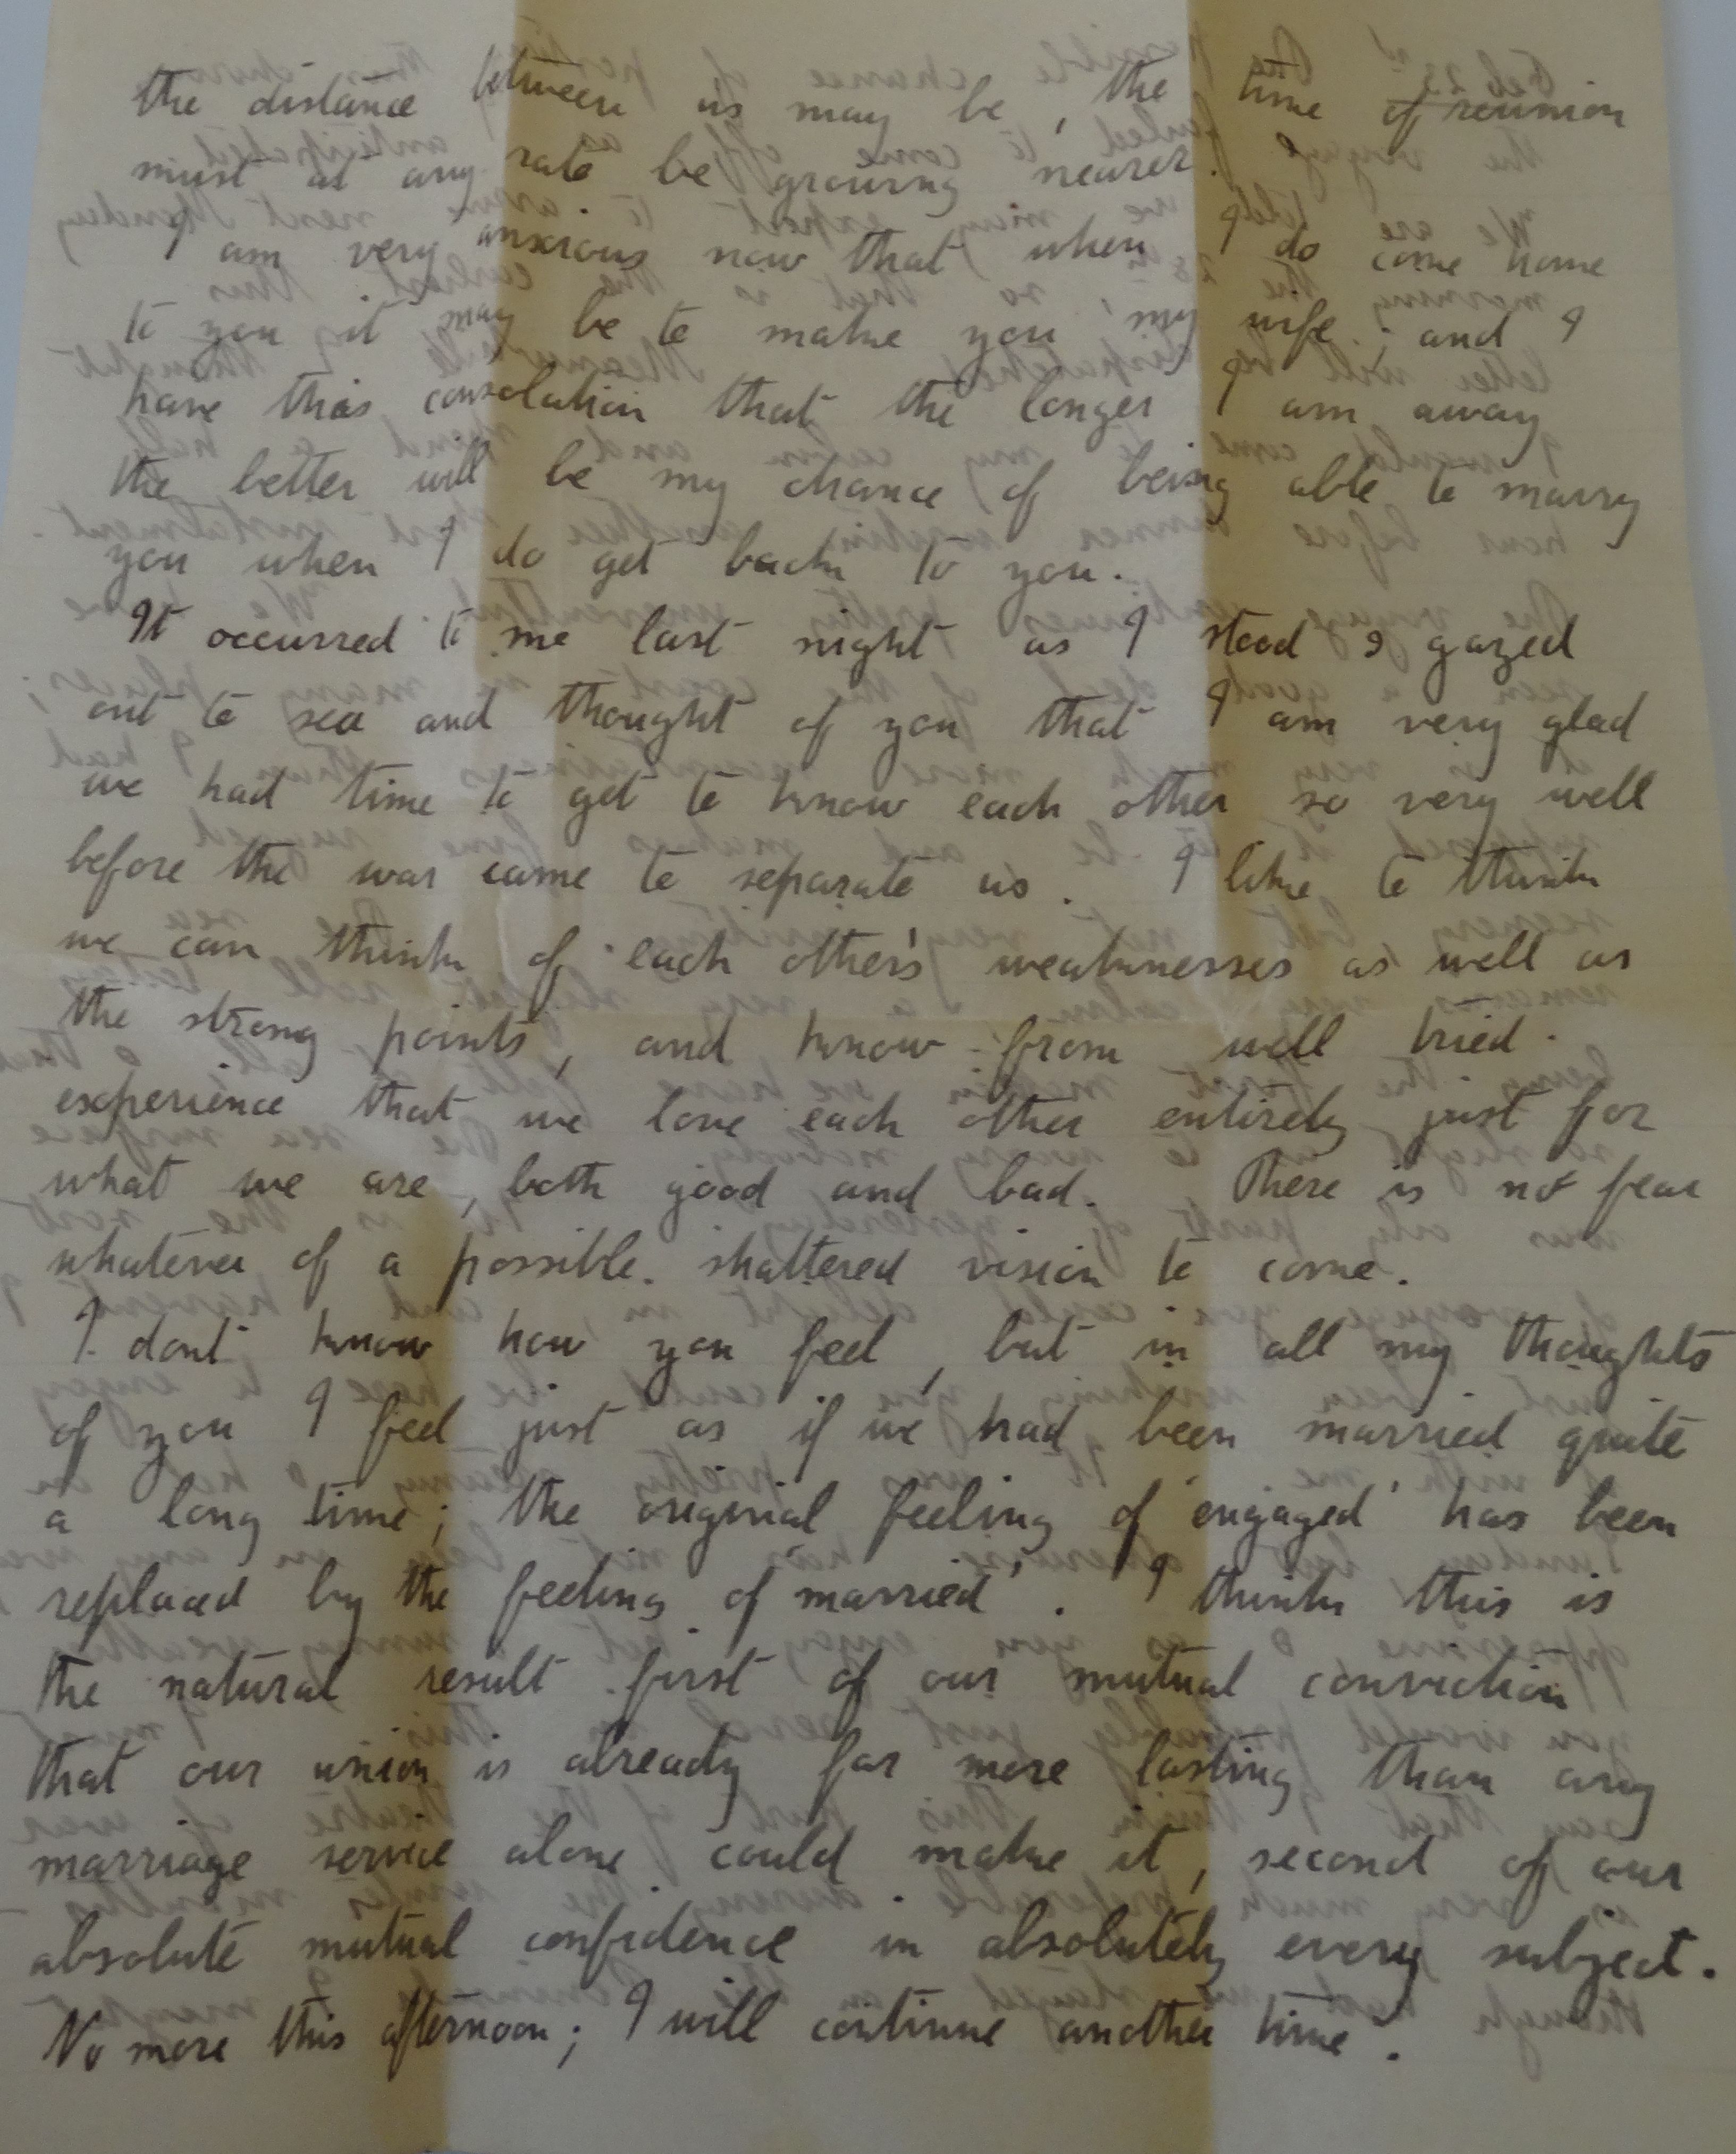 the distance between us may be, the time of reunion
must at any rate be growing nearer.
I am very anxious now that when I do come home
to you it may be to make you my wife; and I
have this consolation that the longer I am away
the better will be my chance of being able to marry
you when I do get back to you.
It occurred to me last night as I stood & gazed
out to sea and thought of you that I am very glad
we had time to get to know each other so very well
before the war came to separate us. I like to think
we can think of each other's weaknesses as well as
the strong points, and know from well tried
experience that we love each other entirely just for
what we are, both good and bad. There is no fear
whatever of a possible shattered vision to come.
I dont know how you feel, but in all my thoughts
of you I feel just as if we had been married quite
a long time; the original feeling of 'engaged' has been
replaced by the feeling of 'married'. I think this is
the natural result first of our mutual conviction
that our union is already far more lasting than any
marriage service alone could make it, second of our
absolute mutual confidence in absolutely every subject.
No more this afternoon; I will continue another time.